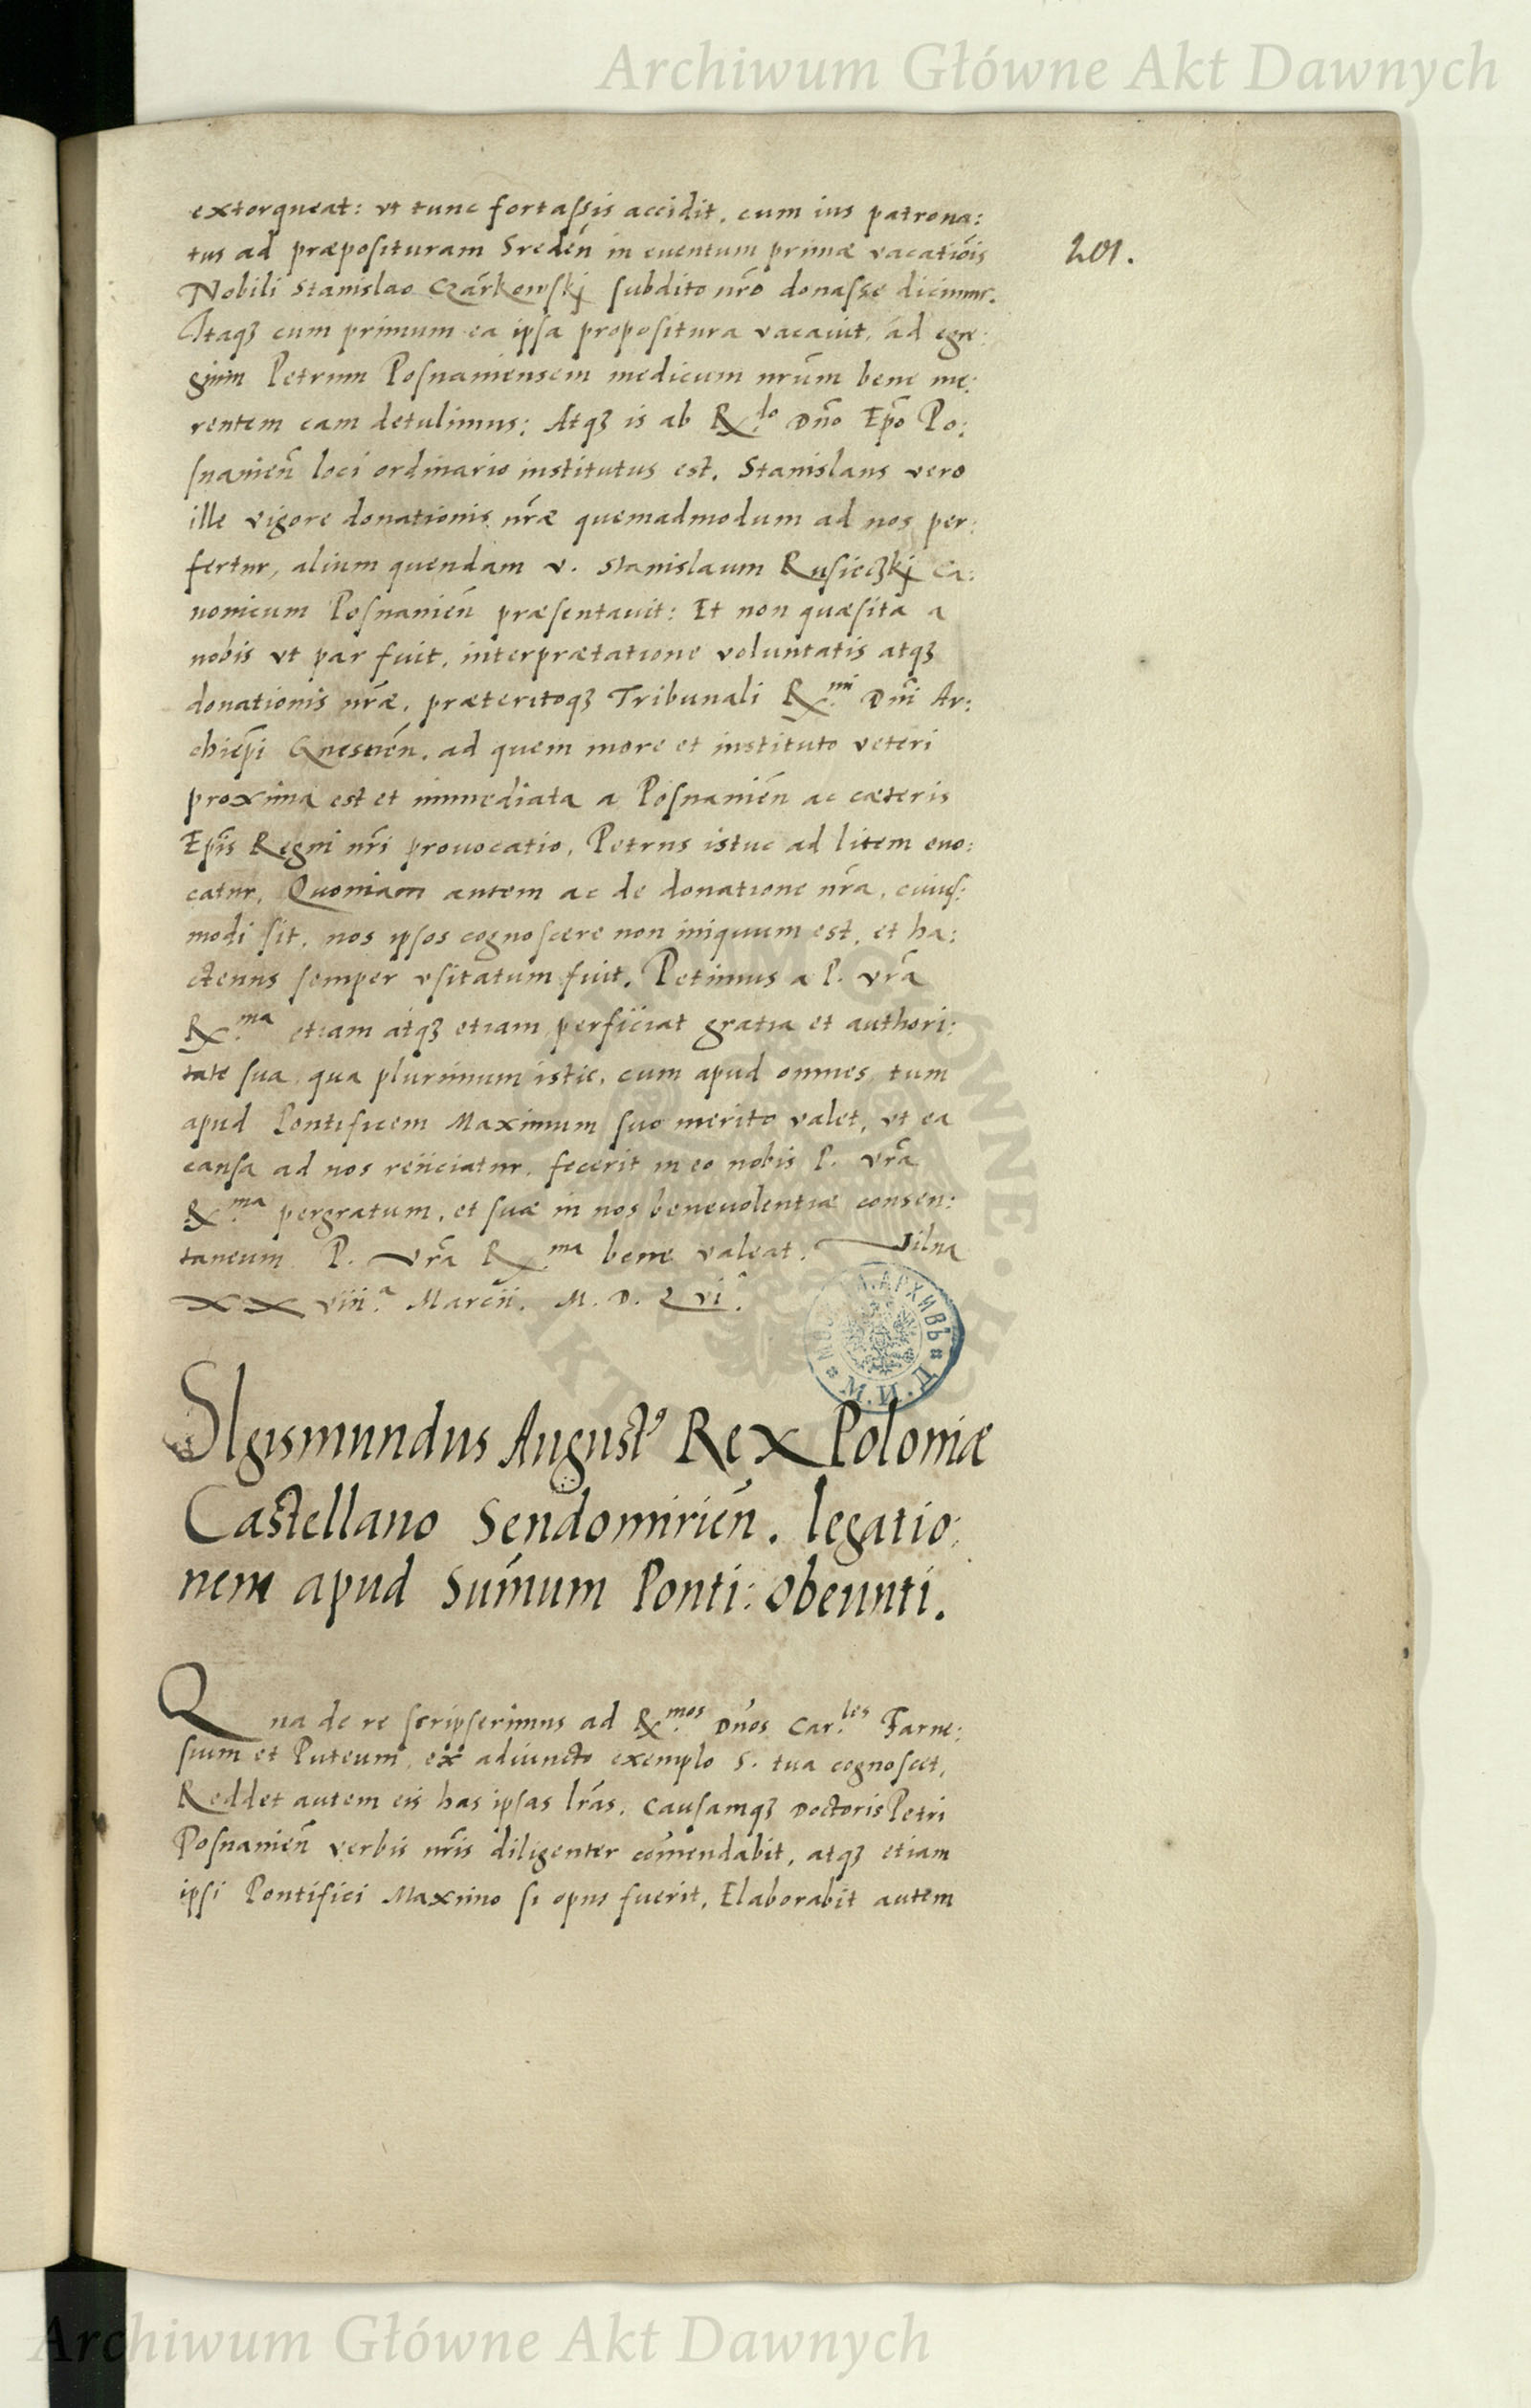 Archiwum Główne Akt Dawnych
extorqueat: vt tunc fortassis accidit, cum ius patrona:
tus ad præposituram Sredeñ in euentum primæ vacatiõis
Nobili Stanislao Czárkowskj subdito nr̃o donasse dicimur.
Itaqꝫ cum primum ea ipsa propositura vacauit, ad egre:
gium Petrum Posnaniensem medicum nrũm bene me:
rentem eam detulimus: Atqꝫ is ab Rx.do Dño Ep̃o Po:
snanieñ loci ordinario institutus est. Stanislaus vero
ille vigore donationis nr̃æ quemadmodum ad nos per:
fertur, alium quendam v. Stanislaum Rusieczkj Ca:
nonicum Posnanieñ præsentauit: Et non quæsita a
nobis vt par fuit, interprætatione voluntatis atqꝫ
donationis nr̃æ, præteritoqꝫ Tribunali Rx.mi Dñi Ar:
chiep̃i Gnesneñ, ad quem more et instituto veteri
proxima est et immediata a Posnanieñ ac cæteris
Ep̃is Regni nr̃i prouocatio, Petrus istuc ad litem euo:
catur, Quoniam autem ac de donatione nr̃a, cuius:
modi sit, nos ipsos cognoscere non iniquum est, et ha:
ctenus semper vsitatum fuit, Petimus a P. vr̃a
Rx.ma etiam atqꝫ etiam perficiat gratia et authori:
tate sua, qua plurimum istic, cum apud omnes, tum
apud Pontificem Maximum suo merito valet, vt ea
causa ad nos reiiciatur, fecerit in eo nobis P. vr̃a
Rx.ma pergratum, et suæ in nos beneuolentiæ consen:
taneum P. vr̃a Rx.ma bene valeat. Vilna
XX viii.a Marcii. M. D. Lvi.o
201.
SIgismundus August9 Rex Poloniæ
Castellano Sendomirieñ. legatio:
nem apud Sum̃um Ponti: obeunti.
Qua de re scripserimus ad Rx.mos Dños Car.les Farne:
sium et Puteum, ex adiuncto exemplo S. tua cognoscet,
Reddet autem eis has ipsas lr̃as, causamqꝫ Doctoris Petri
Posnanieñ verbis nr̃is diligenter com̃endabit, atqꝫ etiam
ipsi Pontifici Maximo si opus fuerit, Elaborabit autem
Archiwum Główne Akt Dawnych